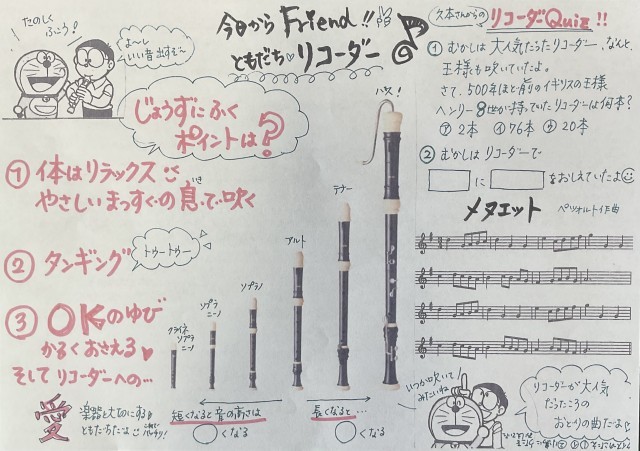 たのしく
ふこう!
よ〜し
いい音出すぞ〜
今日から Friend!!
ともだち♡リコーダー
じょうずにふく
ポイントは?
① 体はリラックス
やさしいまっすぐの息で吹く
いき
② タンギング
トゥートゥー
③ OKのゆび
かるくおさえる♥
そしてリコーダーへの…
愛
楽器を大切にする
ともだちだよ
これで
バッチリ!
クライネ
ソプラ
ニーノ
ソプラ
ニーノ
ソプラノ
アルト
テナー
バス!
短くなると音の高さは
○くなる
長くなると…
○くなる
久本さんからの リコーダーQuiz!!
① むかしは大気だったリコーダー、なんと、
王様も吹いていたよ。
さて、500年ほど前のイギリスの王様
ヘンリー8世が持っていたリコーダーは何本?
㋐ 2本 ㋑ 76本 ㋒ 20本
② むかしはリコーダーで
に をおしえていたよ
メヌエット
ペツォルト作曲
いつか吹いて
みたいね
リコーダーが大人気
だったころの
おどりの曲だよ!